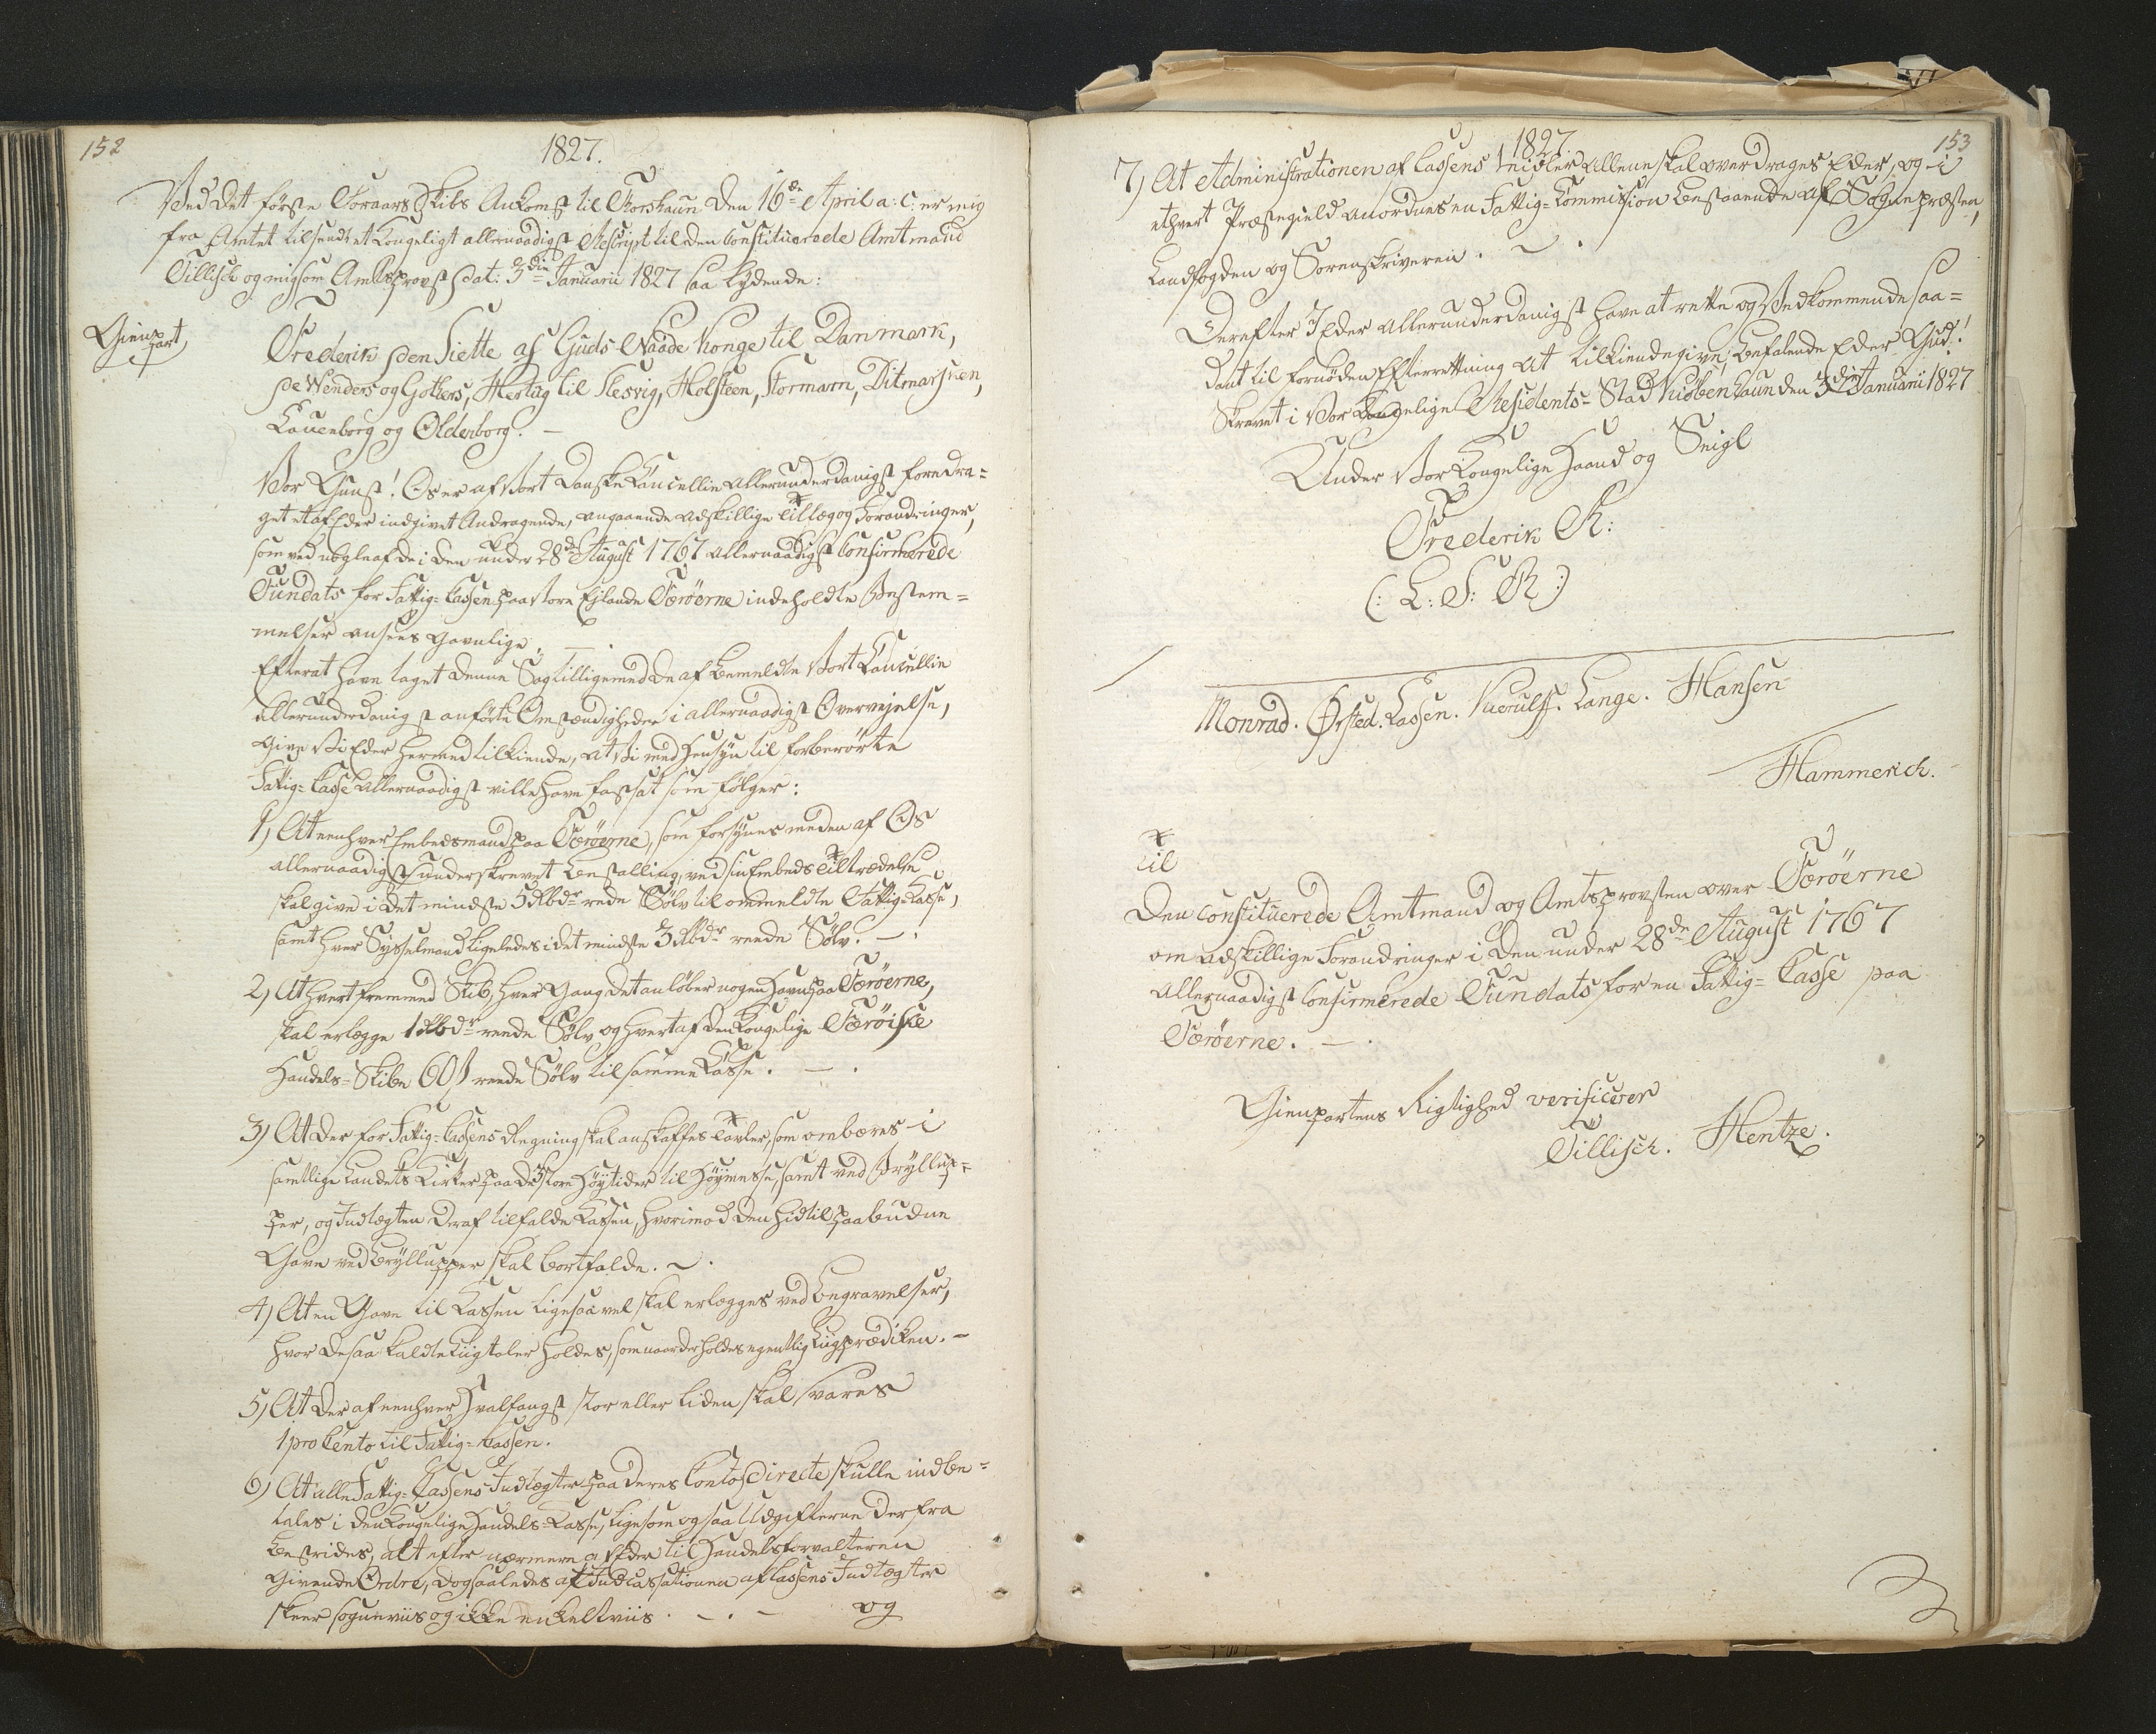 152
1827.
Ved det første Foraars Skibs Ankomst til Thorshaun den 16de April a: c: er mig
fra Amtet tilsendt et Kongeligt allernaadigst Rescript til den constituerede Amtmand
Tillisch og mig som Amtsprovst dat: 3die Januarii 1827 saa lydende:
Gien-
part
Frederik den Siette af Guds Naade Konge til Danmark,
de Wenders og Gothers, Hertug til Slesvig, Holsteen, Stormarn, Ditmarsken,
Lauenborg og Oldenborg. —
Vor Gunst! Os er af Vort danske Cancellie allerunderdanigst foredra=
get et af Eder indgivet Andragende, angaaende adskillige Tillæg og Forandringer,
som ved nogle af de i den under 28de August 1767 allernaadigst confirmerede
Fundats for Fattig=Cassen paa Vore Eylande Færöerne indeholdte Bestem=
melser ansees gavnlige. —
Efterat have taget denne Sag tilligemed de af bemeldte Vort Cancellie
allerunderdanigst anførte Omstændigheder i allernaadigst Overvejelse,
give Vi Eder hermed tilkiende, at Vi med Hensyn til forberørte
Fattig=Casse allernaadigst ville have fastsat som følger:
1) At eenhver Embedsmand paa Færöerne, som forsynes med en af Os
allernaadigst underskrevet Bestalling, ved sin Embeds Tiltrædelse
skal give i det mindste 5 Rbdr rede Sølv til ommeldte Fattig=Casse,
samt hver Sysselmand ligeledes i det mindste 3 Rbdr reede Sølv. —
2) At hvert fremmed Skib, hver Gang det anløber nogen Havn paa Færöerne,
skal erlægge 1 Rbdr reede Sølv og hvert af den Kongelige Færöiske
Handels=Skibe 60 ß reede Sølv til samme Casse. —
3) At der for Fattig=Cassens Regning skal anskaffes Tavler, som ombæres i
samtlige Landets Kirker paa de 3 store Høytider til Høymesse, samt ved Bryllup=
per, og Indtægten deraf tilfalde Cassen, hvorimod den hidtil paabudne
Gave ved Brylluper skal bortfalde. —
4) At en Gave til Cassen ligesaavel skal erlægges ved Begravelser,
hvor de saa kaldte Liigtaler holdes, som naar der holdes egentlig Liigprædiken. —
5) At der af eenhver Hvalfangst stor eller liden skal svares
1 pro Cento til Fattig=Cassen.
6) At alle Fattig=Cassens Indtægter paa deres Conto directe skulle indbe=
tales i den Kongelige Handels=Casse, ligesom ogsaa Udgifterne derfra
bestrides, alt efter nærmere af Eder til Handelsforvalteren
givende Ordre, dog saaledes at Indcassationen af Cassens Indtægter
skeer sogneviis og ikke enkeltviis. —
og
153
1827
7) At Administrationen af Cassens Midler allene skal overdrages Eder, og i
ethvert Præstegield anordnes en Fattig=Kommission bestaaende af Sognepræsten,
Landfogden og Sorenskriveren. —
Derefter I Eder allerunderdanigst have at rette og Vedkommende saa=
dant til fornøden Efterretning at tilkiendegive, befalende Eder Gud!
Skrevet i Vor Kongelige Residents=Stad Kiöbenhaun den 3die Januarii 1827
Under Vor Kongelige Haand og Seigl
Frederik R:
(: L: S: R :)
Monrad. Ørsted. Lassen. Kierulff. Lange. Hansen
Hammerich.
Til
Den constituerede Amtmand og Amtsprovsten over Færöerne
om adskillige Forandringer i den under 28de August 1767
allernaadigst confirmerede Fundats for en Fattig=Casse paa
Færöerne. —
Gienpartens Rigtighed verificerer
Tillisch. Hentze.